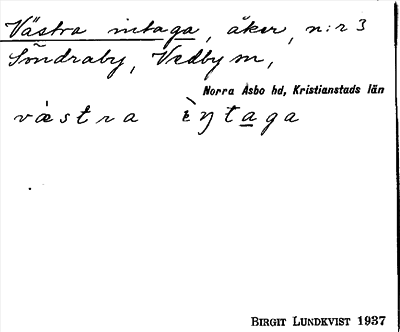 Västra intaga, åker, n:r 3
Söndraby, Vedby sn,
Norra Åsbo hd, Kristianstads län
västra ìŋtaga
BIRGIT LUNDKVIST 1937